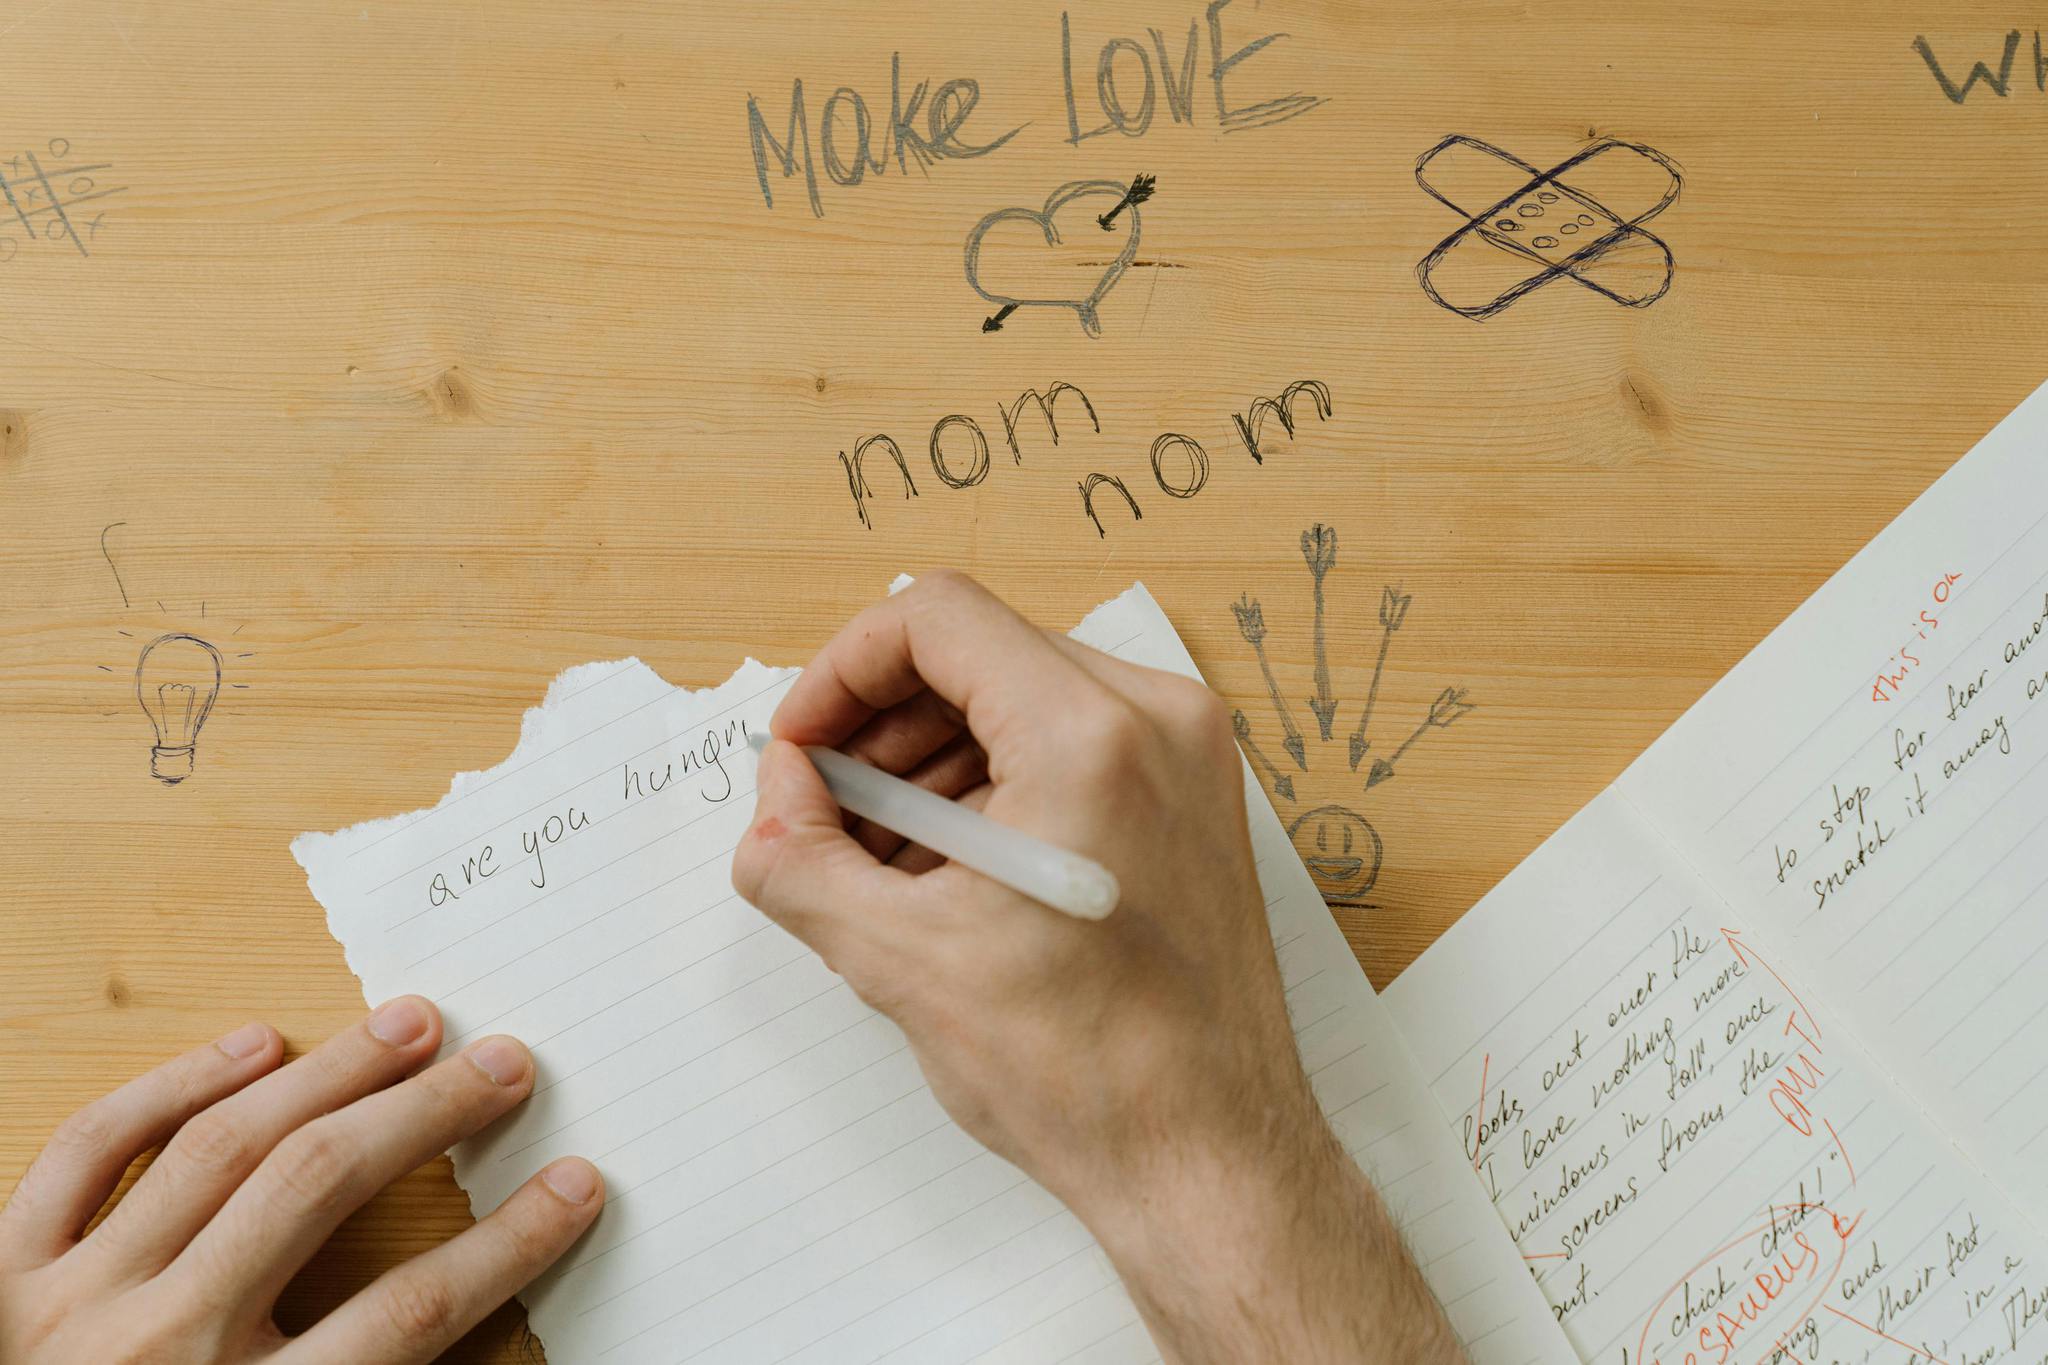 Make LOVE
WH
nom
nom
are you hungr
this is on
to stop for fear anot
snatch it away an
looks out over the
I love nothing more
windows in fall, once
screens from the
out.
OMIT
chick - chick!"
SAURUS
and
their feet
in a
They